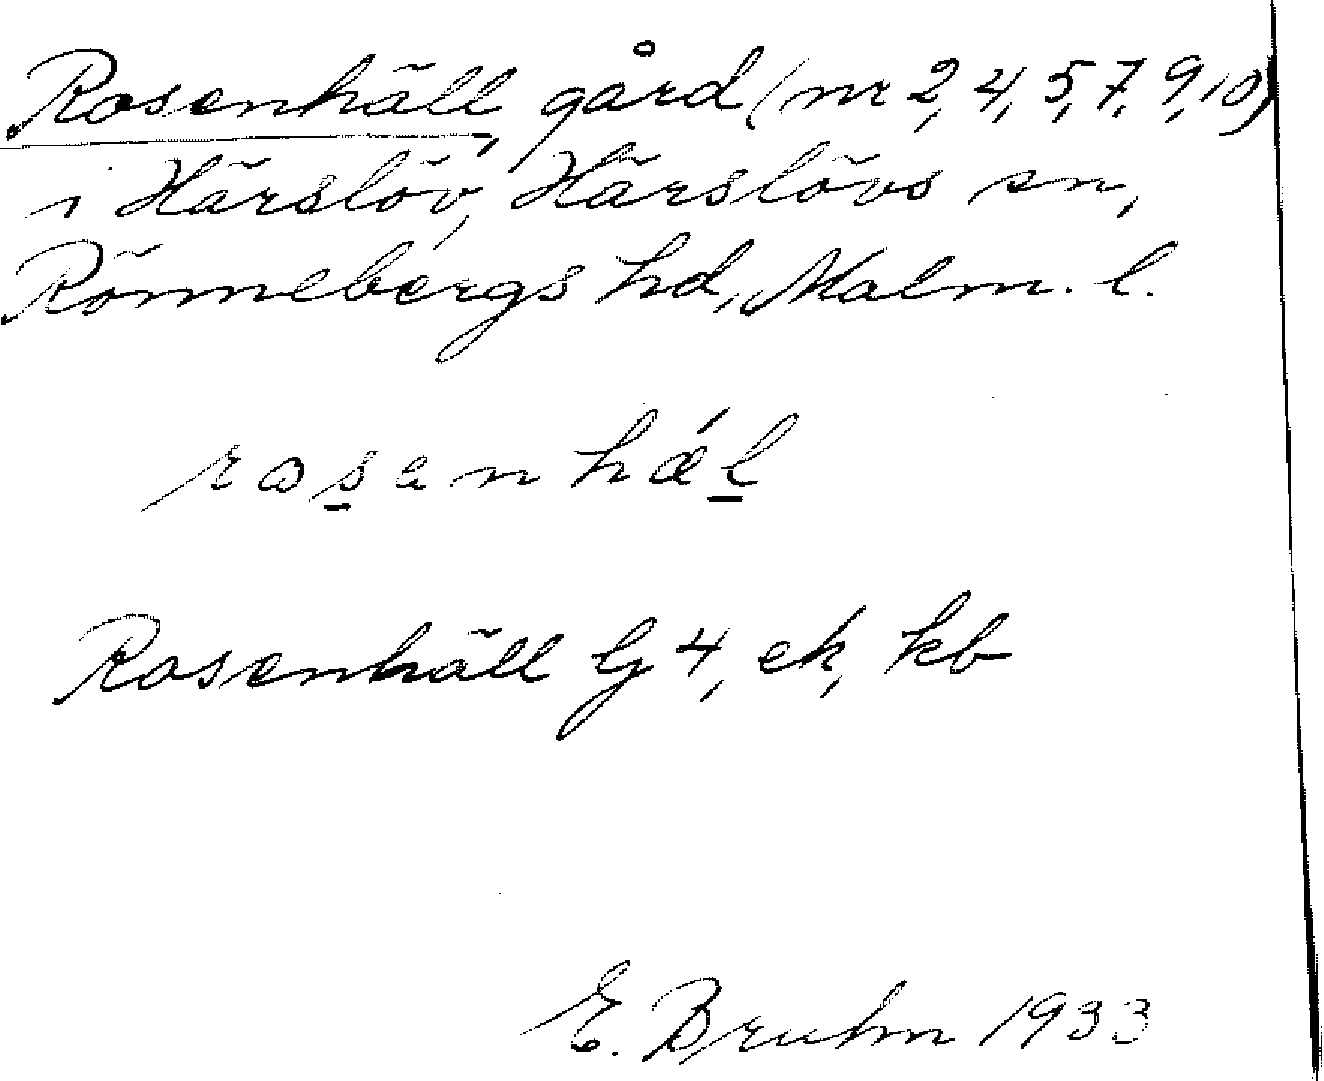 Rosenhäll, gård (nr 2, 4, 5, 7, 9, 10)
i Härslöv, Härslövs sn,
Rönnebergs hd, Malm. l.
rosenhǽl
Rosenhäll G 4, ek, kb
E. Bruhn 1933